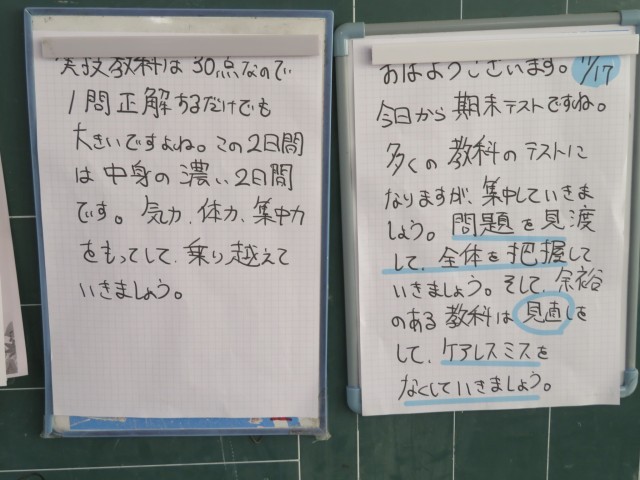 おはようございます。 11/17
今日から期末テストですね。
多くの教科のテストに
なりますが、集中していきま
しょう。問題を見渡
して、全体を把握して
いきましょう。そして、余裕
のある教科は見直しを
して、ケアレスミスを
なくしていきましょう。
実技教科は30点なので
1問正解するだけでも
大きいですよね。この2日間
は中身の濃い2日間
です。気力、体力、集中力
をもってして、乗り越えて
いきましょう。